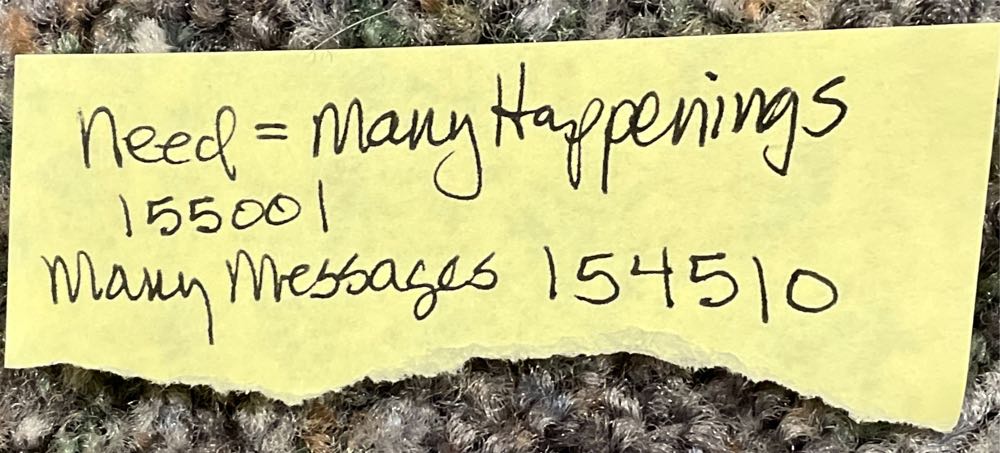 Need = Many Happenings
155001
Many Messages 154510